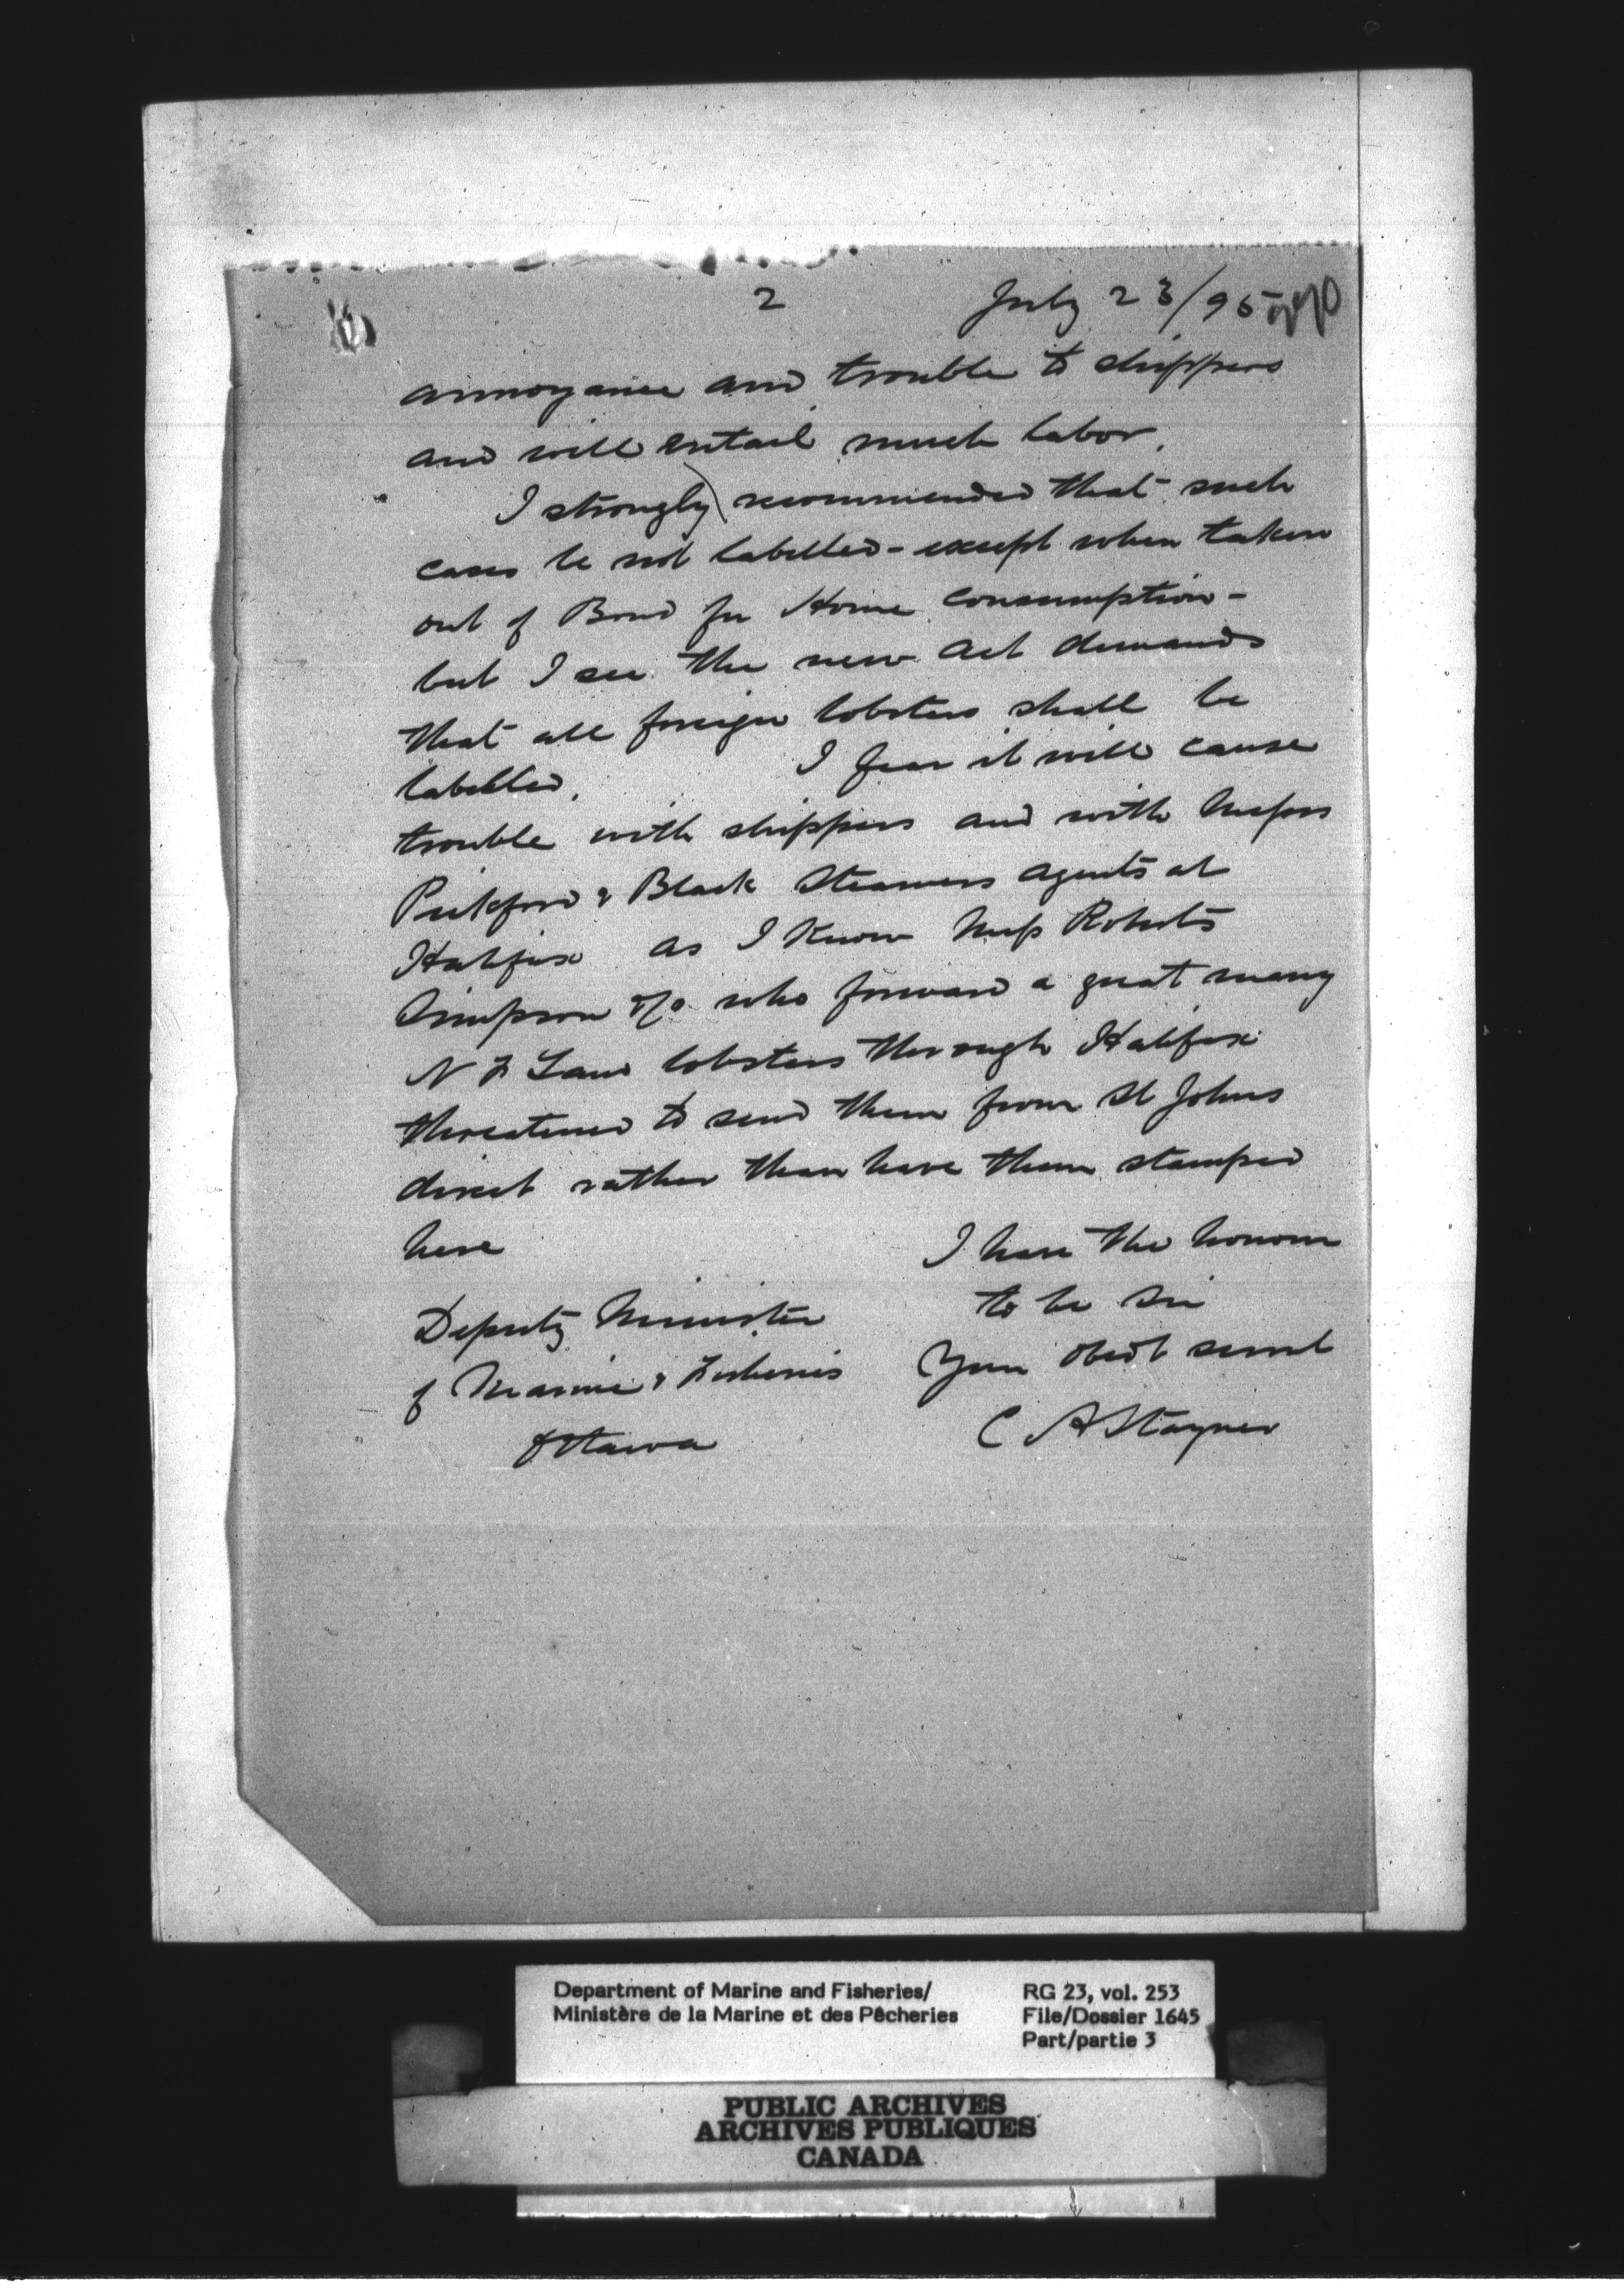 2 July 23/95
annoyance and trouble to shippers
and will entail much labor.
I strongly recommended that such
cases be not labelled - except when taken
out of Bond for Home Consumption -
but I see the new Act demands
that all foreign lobsters shall be
labelled. I fear it will cause
trouble with shippers and with Messrs
Pickford & Black Steamers Agents at
Halifax as I know Mess Roberts
Simpson &Co who forward a great many
N F Land lobsters through Halifax
threatened to send them from St Johns
direct rather than have them stamped
here I have the honour
to be Sir
Deputy Minister
of Marine & Fisheries Your obedt servt
Ottawa C A Stayner
Department of Marine and Fisheries/ RG 23, vol. 253
Ministère de la Marine et des Pêcheries File/Dossier 1645
Part/partie 3
PUBLIC ARCHIVES
ARCHIVES PUBLIQUES
CANADA